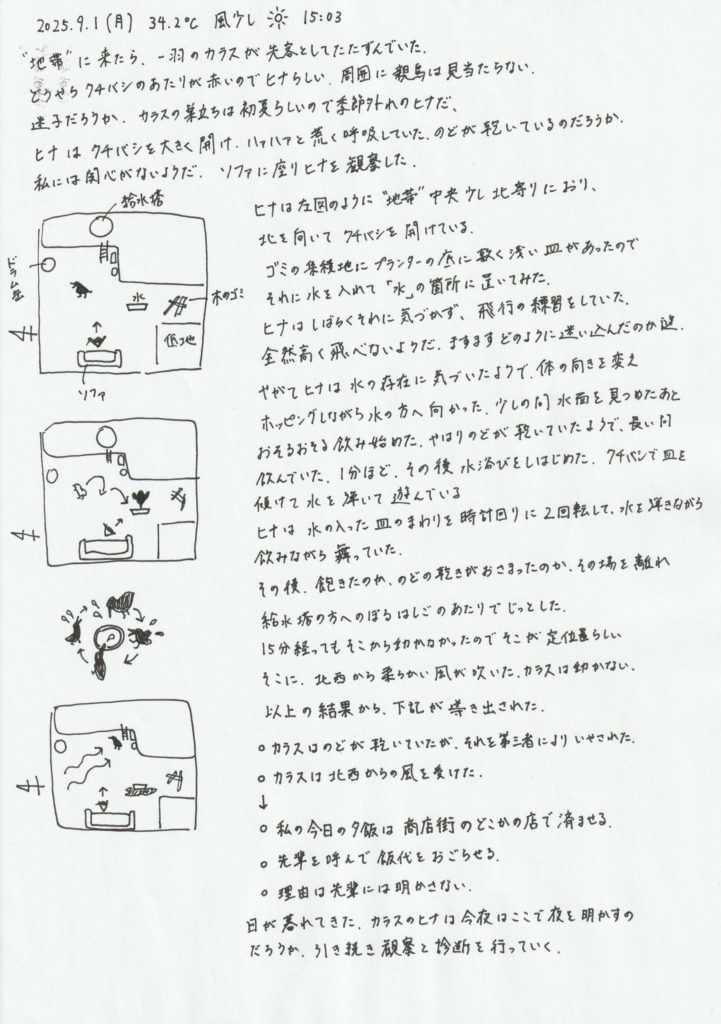 2025.9.1(月) 34.2℃ 風少し 15:03
"地帯"に来たら、一羽のカラスが先客としてたたずんでいた.
どうやらクチバシのあたりが赤いのでヒナらしい. 周囲に親鳥は見当たらない.
迷子だろうか. カラスの巣立ちは初夏らしいので季節外れのヒナだ、
ヒナはクチバシを大きく開け. ハァハァと荒く呼吸していた. のどが乾いているのだろうか.
私には関心がないようだ. ソファに座りヒナを観察した.
給水塔
ドラム缶
水
木のゴミ
低地
ソファ
ヒナは左図のように"地帯"中央少し北寄りにおり、
北を向いてクチバシを開けている.
ゴミの集積地にプランターの底に敷く浅い皿があったので
それに水を入れて「水」の箇所に置いてみた.
ヒナはしばらくそれに気づかず、飛行の練習をしていた.
全然高く飛べないようだ. ますますどのように迷い込んだのか謎.
やがてヒナは水の存在に気づいたようで、体の向きを変え
ホッピングしながら水の方へ向かった. 少しの間水面を見つめたあと
おそるおそる飲み始めた. やはりのどが乾いていたようで、長い間
飲んでいた. 1分ほど. その後水浴びをしはじめた. クチバシで皿を
傾けて水を弾いて遊んでいる
ヒナは水の入った皿のまわりを時計回りに2回転して、水を弾きながら
飲みながら舞っていた.
その後. 飽きたのか、のどの乾きがおさまったのか、その場を離れ
給水塔の方へのぼるはしごのあたりでじっとした.
15分経ってもそこから動かなかったのでそこが定位置らしい
そこに、北西から柔らかい風が吹いた. カラスは動かない.
以上の結果から、下記が導き出された.
○ カラスはのどが乾いていたが、それを第三者によりいやされた.
○ カラスは北西からの風を受けた.
↓
○ 私の今日の夕飯は商店街のどこかの店で済ませる.
○ 先輩を呼んで飯代をおごらせる.
○ 理由は先輩には明かさない.
日が暮れてきた. カラスのヒナは今夜はここで夜を明かすの
だろうか. 引き続き観察と診断を行っていく.